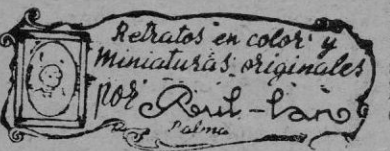 Retratos en color y
miniaturas originales
por Raul-
Palma